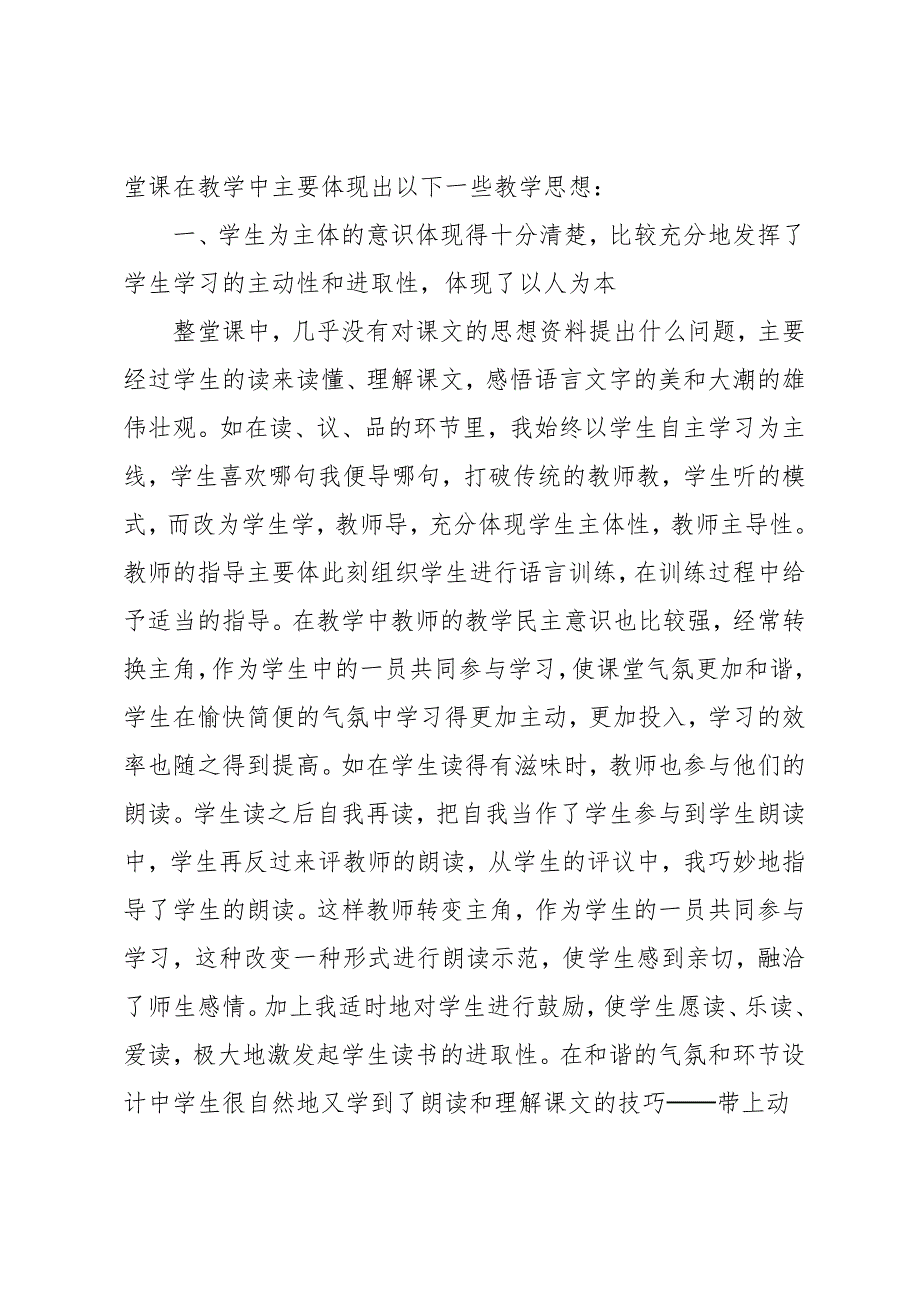 堂课在教学中主要体现出以下一些教学思想：
一、学生为主体的意识体现得十分清楚，比较充分地发挥了
学生学习的主动性和进取性，体现了以人为本
整堂课中，几乎没有对课文的思想资料提出什么问题，主要
经过学生的读来读懂、理解课文，感悟语言文字的美和大潮的雄
伟壮观。如在读、议、品的环节里，我始终以学生自主学习为主
线，学生喜欢哪句我便导哪句，打破传统的教师教，学生听的模
式，而改为学生学，教师导，充分体现学生主体性，教师主导性。
教师的指导主要体此刻组织学生进行语言训练，在训练过程中给
予适当的指导。在教学中教师的教学民主意识也比较强，经常转
换主角，作为学生中的一员共同参与学习，使课堂气氛更加和谐，
学生在愉快简便的气氛中学习得更加主动，更加投入，学习的效
率也随之得到提高。如在学生读得有滋味时，教师也参与他们的
朗读。学生读之后自我再读，把自我当作了学生参与到学生朗读
中，学生再反过来评教师的朗读，从学生的评议中，我巧妙地指
导了学生的朗读。这样教师转变主角，作为学生的一员共同参与
学习，这种改变一种形式进行朗读示范，使学生感到亲切，融洽
了师生感情。加上我适时地对学生进行鼓励，使学生愿读、乐读、
爱读，极大地激发起学生读书的进取性。在和谐的气氛和环节设
计中学生很自然地又学到了朗读和理解课文的技巧──带上动